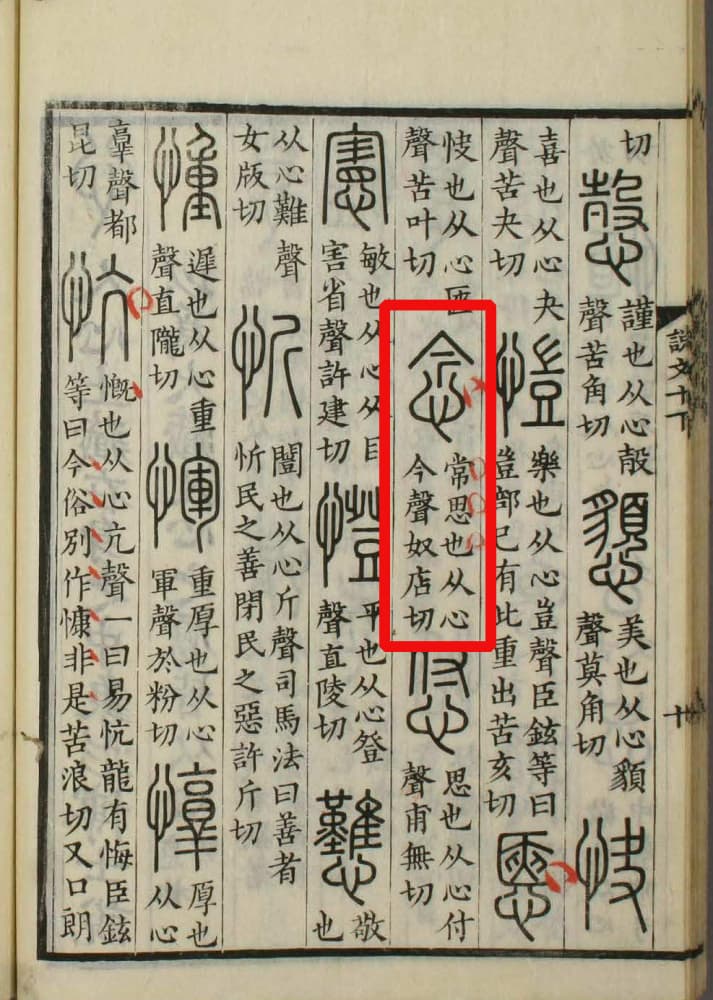 說文十下
十
切
愨
謹也从心㱿
聲苦角切
美也从心䫉
聲莫角切
快
喜也从心夬
聲苦夬切
愷
樂也从心豈聲臣鉉等曰
豈部已有此重出苦亥切
㥦
快也从心匧
聲苦叶切
念
常思也从心
今聲奴店切
怤
思也从心付
聲甫無切
憲
敏也从心从目
害省聲許建切
憕
平也从心登
聲直陵切
戁
敬
也
从心難聲
女版切
忻
闓也从心斤聲司馬法曰善者
忻民之善閉民之惡許斤切
㣫
遲也从心重
聲直隴切
惲
重厚也从心
軍聲於粉切
惇
厚也
从心
𦎫聲都
昆切
忼
慨也从心亢聲一曰易忼龍有悔臣鉉
等曰今俗別作慷非是苦浪切又口朗